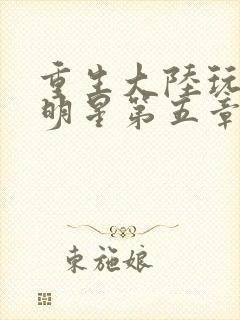 重生大陸玩
明星第五章
東施娘